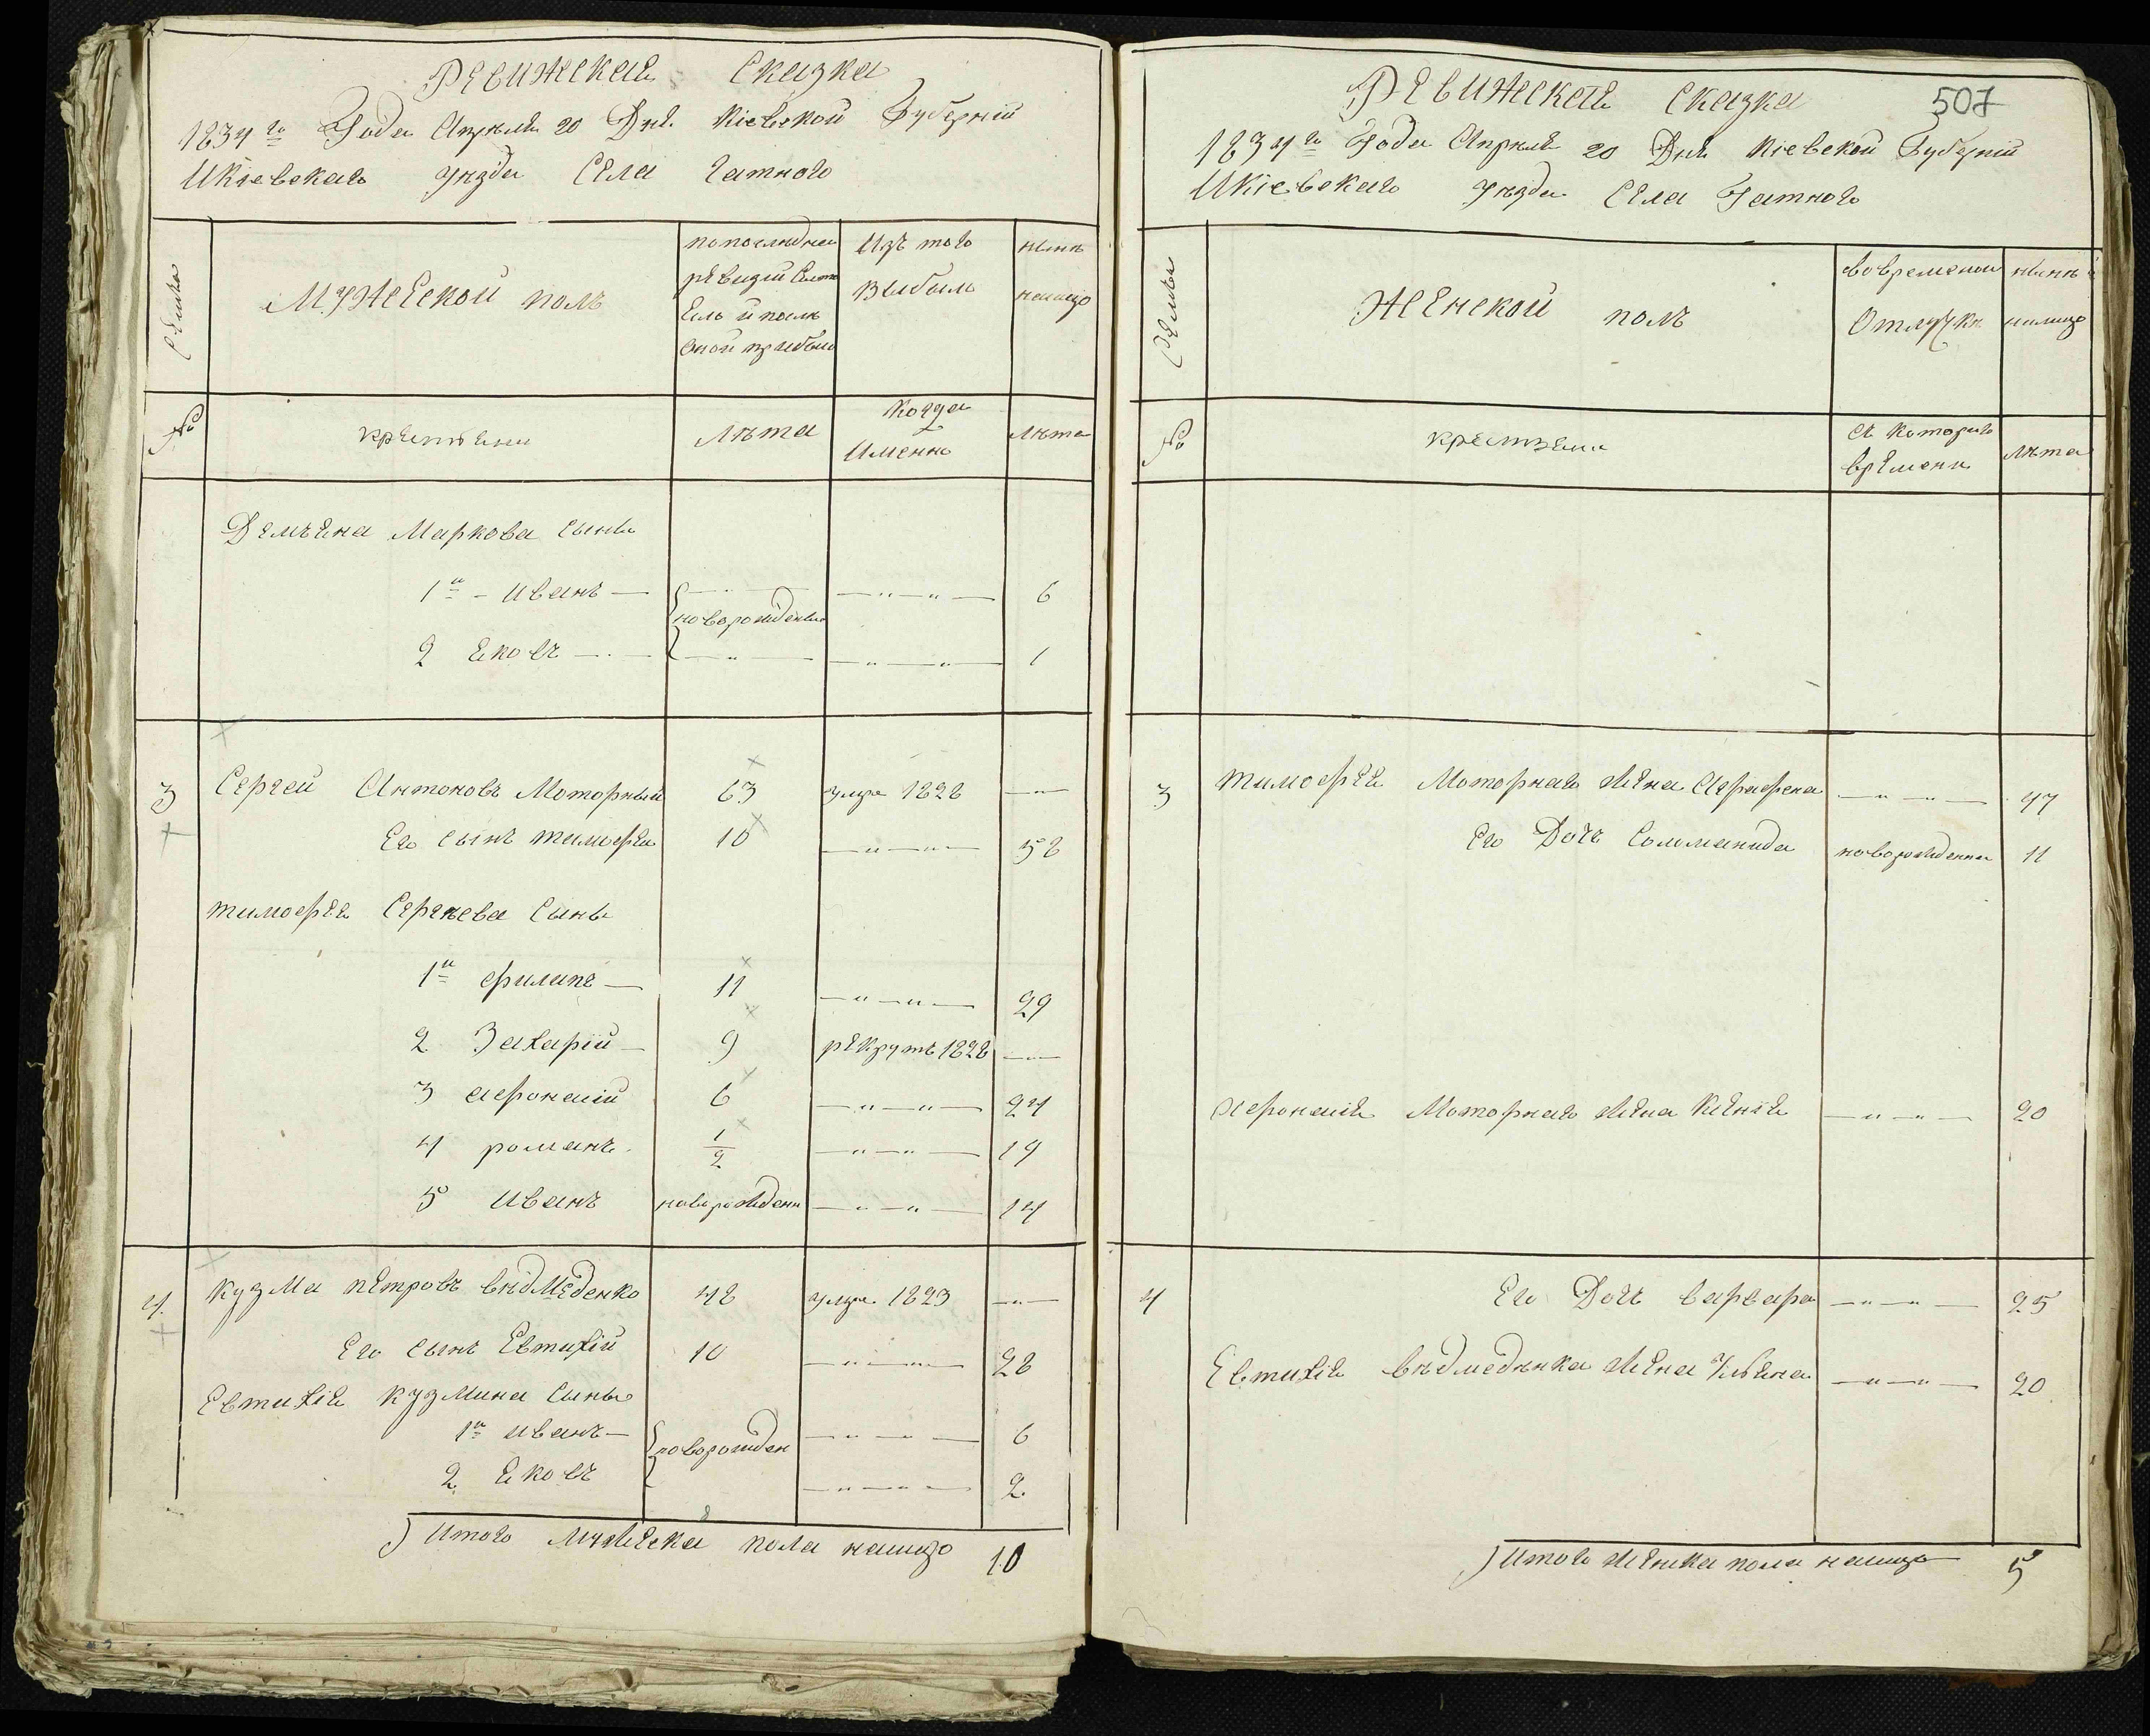 Ревижская Сказка
1834го Года Апреля 20 Дня Кіевской Губерніи
Икіевскаго уѣзда Села Гатного
Семья
Мужеской полъ
попоследнеи
ревизіи
Было и послѣ
оной прибыло
Изъ того
выбыло
нынѣ
налицо
№
крестяни
Лѣта
Когда
Именно
Лѣта
Демьяна Маркова сынъ
1й - иванъ — — " — " — 6
новорожденые
2 яковъ — — " — " — 1
3 Сергей Антоновъ Моторный 63 умре 1828 —
Его сынъ тимофеи 10 — " — " — 58
тимофея Сергѣева Сынъ
1й филипъ — 11 — " — " — 29
2 Захарій — 9 рекрутъ 1828 —
3 афонасій 6 — " — " — 24
4 романъ 1/2 — " — " — 19
5 иванъ новорожденн — " — " — 14
4 кузма петровъ вѣдмеденко 48 умре 1823 —
Его сынъ Евтихій 10 — " — " — 28
Евтихія кузмина сыны
1й иванъ — новорожден — " — " — 6
2 яковъ — " — " — 2
Итого мужеска пола налицо 10
507
Ревижская сказка
1834го Года Апреля 20 Дня Кіевской Губерніи
Икіевскаго уѣзда Села Гатного
Семья
Женской полъ
вовременои
Отлучкѣ
нынѣ
налицо
№
крестяни
съ котораго
времени
лѣта
3 тимофея Моторнаго жена Аграфена — " — " — 47
Его Дочъ Соломанида новорожденна 11
Афонасія Моторнаго жена Ксенія — " — " — 20
4 Его Дочъ варвара — " — " — 25
Евтихія вѣдмедѣнка жена Ульяна — " — " — 20
Итого женска пола налицо 5